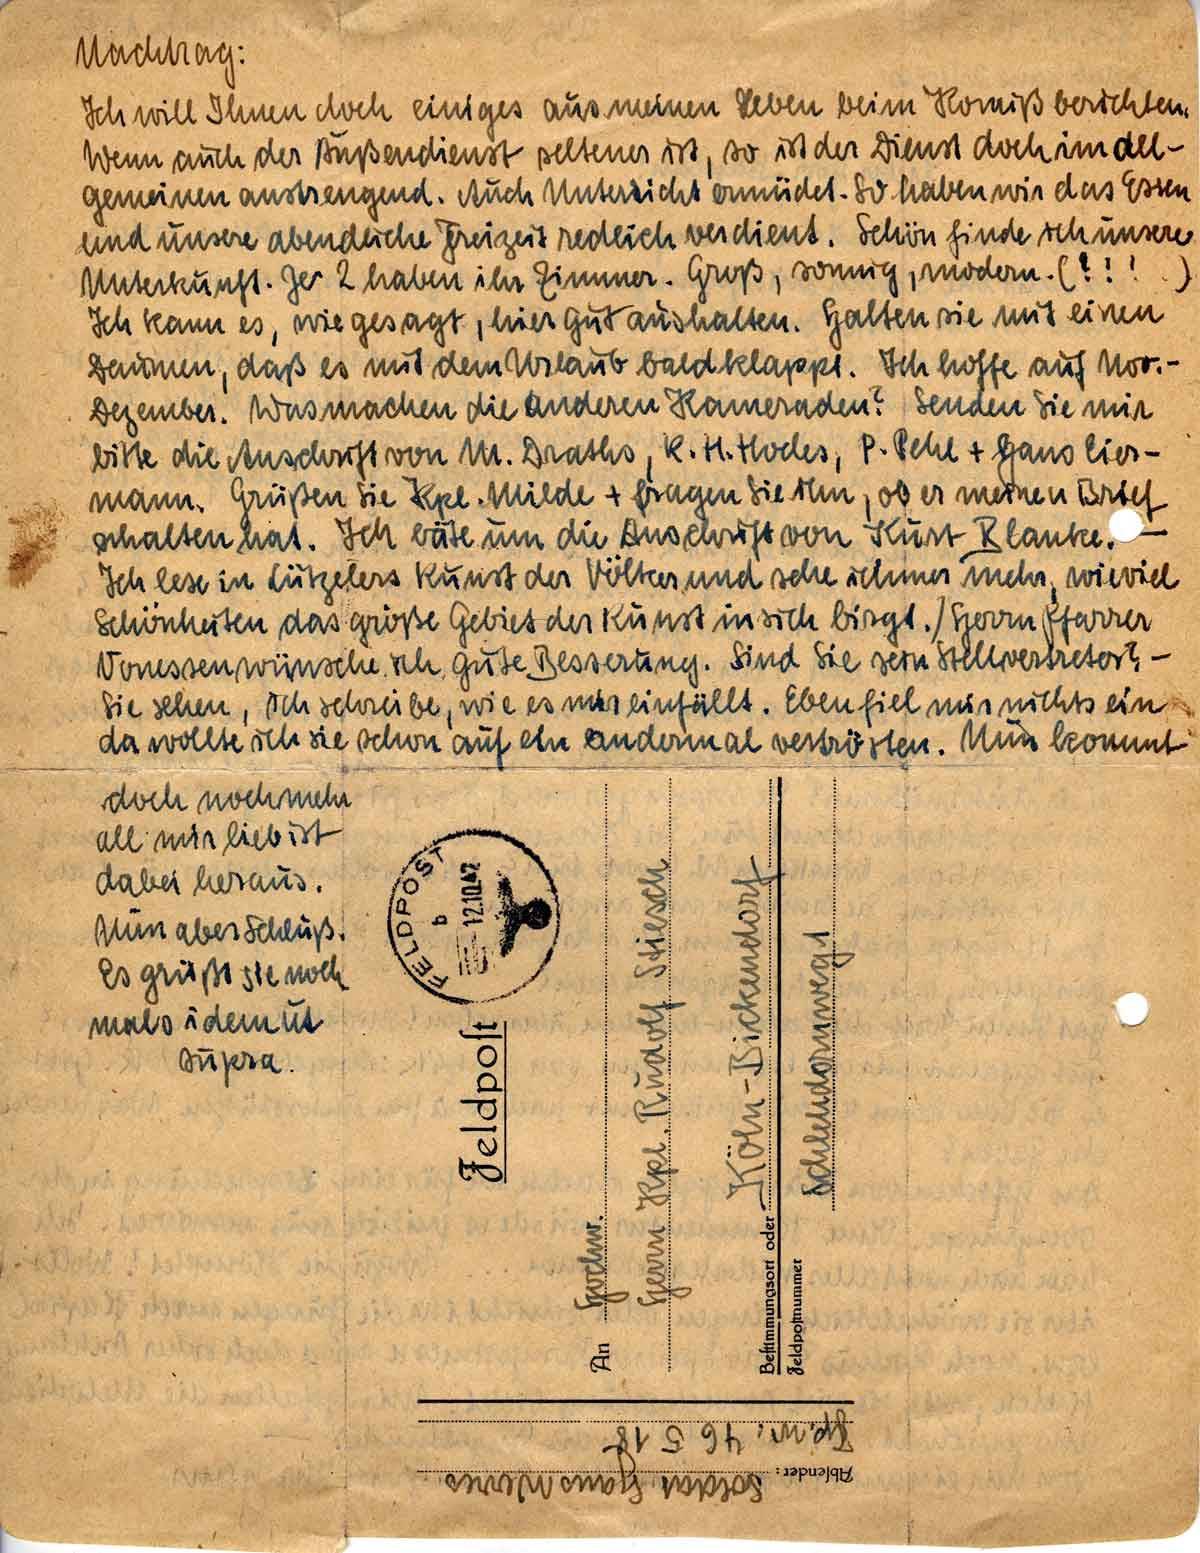 Nachtrag:
Ich will Ihnen doch einiges aus meinen Leben beim Komiß berichten.
Wenn auch der Außendienst seltener ist, so ist der Dienst doch im all-
gemeinen anstrengend. Auch Unterricht ermüdet. So haben wir das Essen
und unsere abendliche Freizeit redlich verdient. Schön finde ich unsere
Unterkunft. Je 2 haben ihr Zimmer. Groß, sonnig, modern. (?!! )
Ich kann es, wie gesagt, hier gut aushalten. Halten sie mit einen
Daumen, daß es mit dem Urlaub bald klappt. Ich hoffe auf Nov.-
Dezember. Was machen die anderen Kameraden? Senden Sie mir
bitte die Anschrift von M. Draths, K. H. Hodes, P. Pehl + Hans Lier-
mann. Grüßen Sie Kpl. Milde + fragen Sie ihn, ob er meinen Brief
erhalten hat. Ich bäte um die Anschrift von Kurt Blanke. –
Ich lese in Lützelers Kunst der Völker und sehe immer mehr, wieviel
Schönheiten das große Gebiet der Kunst in sich birgt. / Herrn Pfarrer
Vonessen wünsche ich gute Besserung. Sind Sie sein Stellvertreter? –
Sie sehen, ich schreibe, wie es mir einfällt. Eben fiel mir nichts ein
da wollte ich sie schon auf ein andermal vertrösten. Nun kommt
doch noch mehr
all mir lieb ist
dabei heraus.
Nun aber Schluß.
Es grüßt sie noch
mals idem ut
supra.
FELDPOST
b
12.10.42
Feldpost
An Hochw.
Herrn Kpl. Rudolf Stiesch
Bestimmungsort oder Köln-Bickendorf
Feldpostnummer Schlehdornweg 1
Absender: Soldat Hans
Fp.nr. 46 518